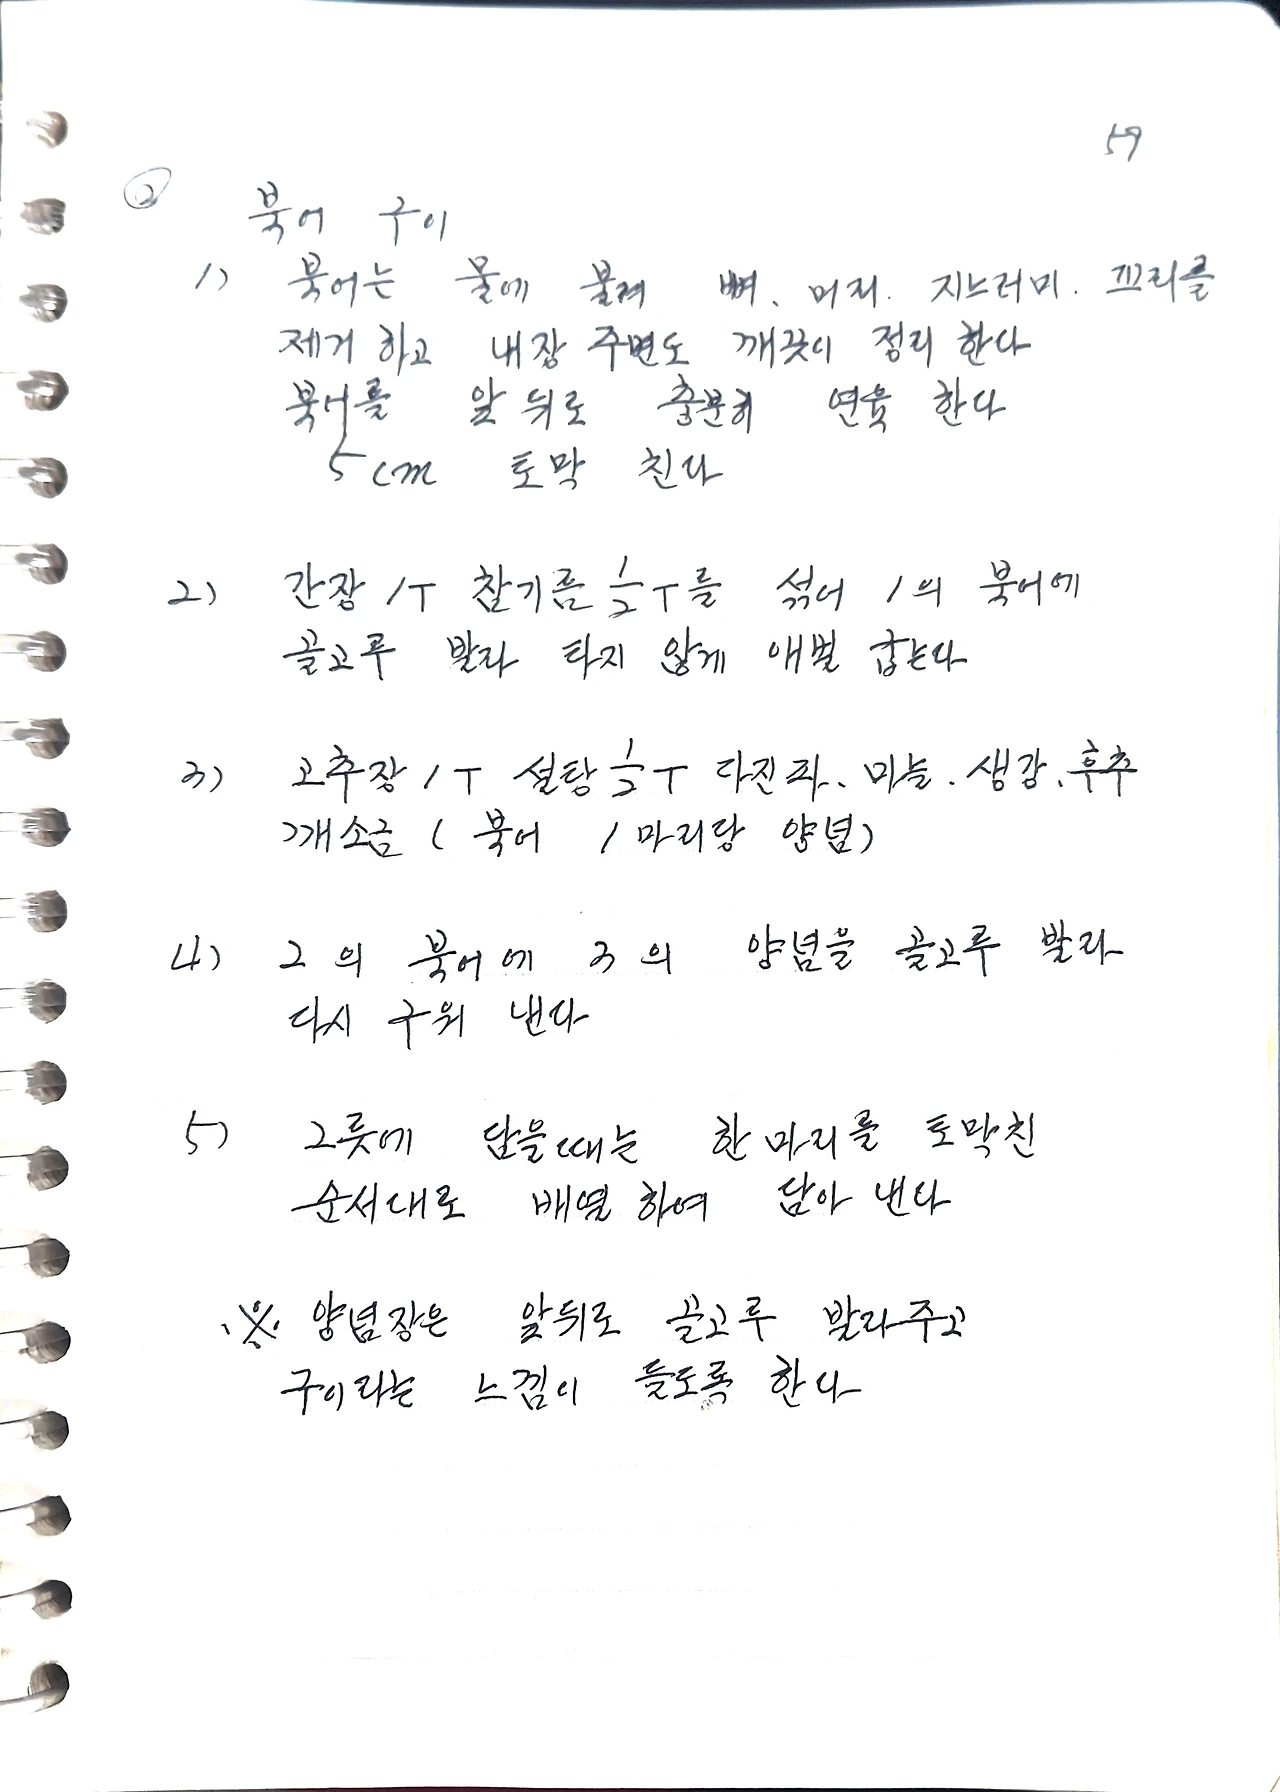 59
② 북어 구이
1) 북어는 물에 불려 뼈、머리. 지느러미. 꼬리를
제거 하고 내장 주변도 깨끗이 정리 한다
북어를 앞 뒤로 충분히 연육 한다
5cm 토막 친다
2) 간장 1T 참기름 1/2T를 섞어 1의 북어에
골고루 발라 타지 않게 애벌 굽는다
3) 고추장 1T 설탕 1/2T 다진파、마늘. 생강、후추
깨소금 ( 북어 1마리당 양념)
4) 2의 북어에 3의 양념을 골고루 발라
다시 구워 낸다
5) 그릇에 담을때는 한마리를 토막친
순서대로 배열 하여 담아 낸다
※ 양념장은 앞뒤로 골고루 발라주고
구이라는 느낌이 들도록 한다